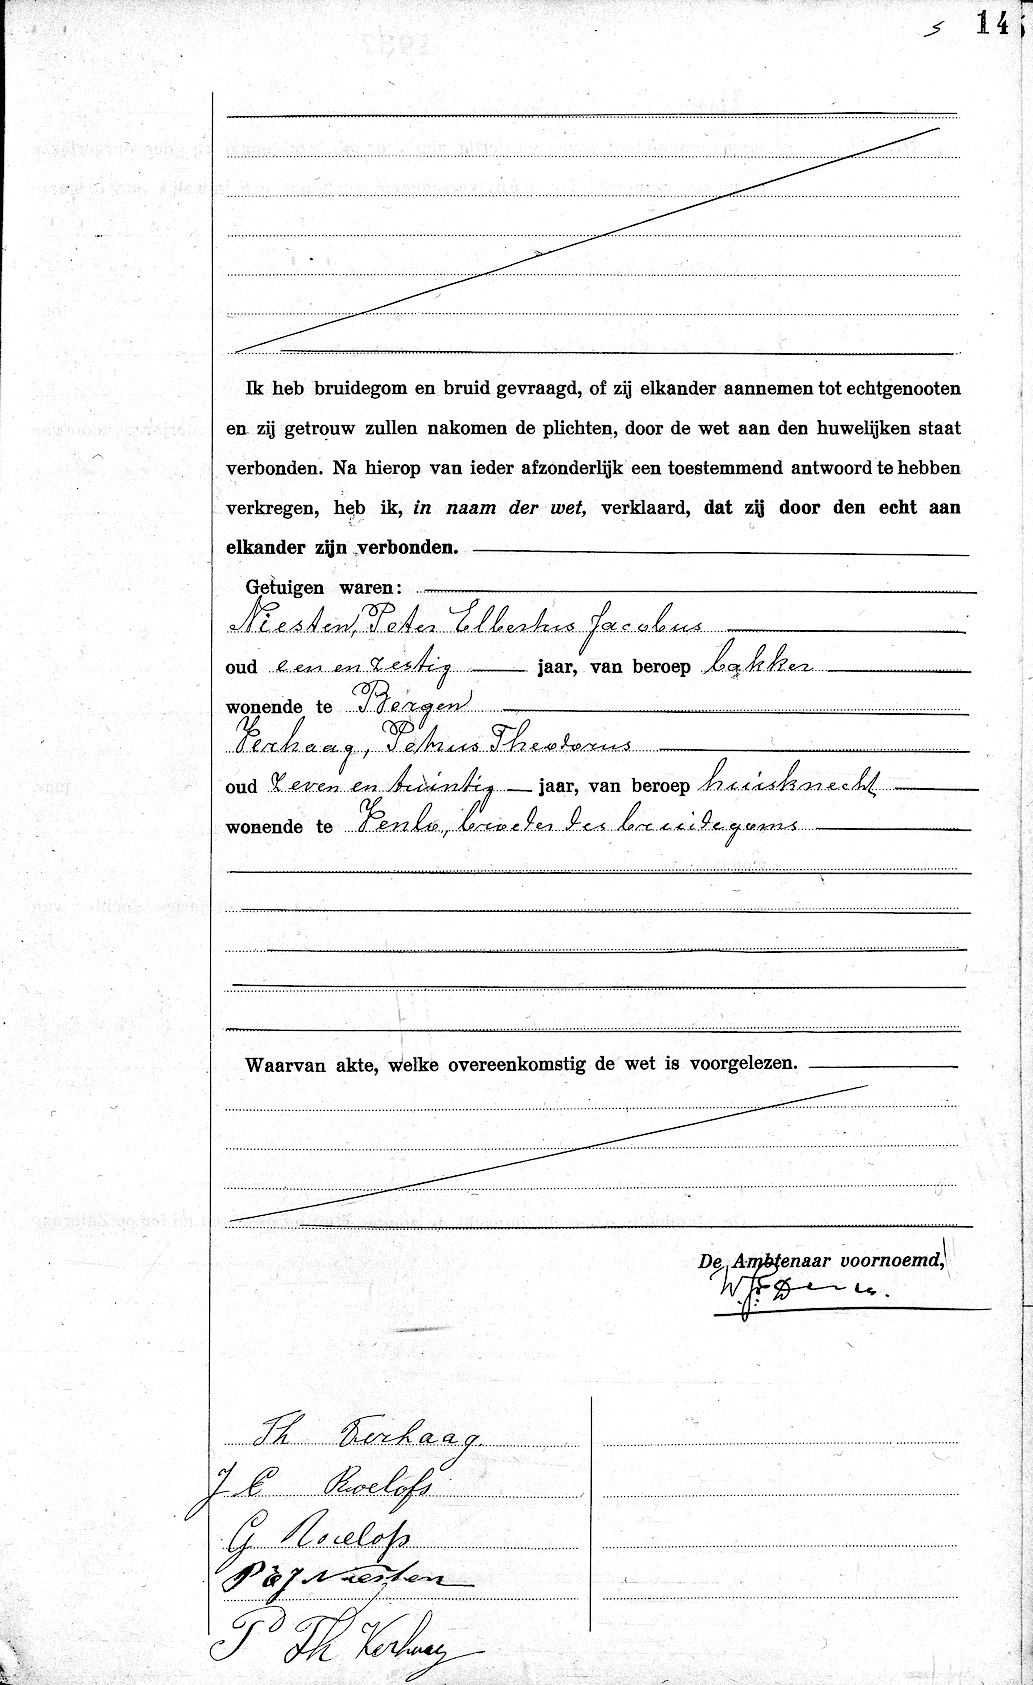 5 14
Ik heb bruidegom en bruid gevraagd, of zij elkander aannemen tot echtgenooten
en zij getrouw zullen nakomen de plichten, door de wet aan den huwelijken staat
verbonden. Na hierop van ieder afzonderlijk een toestemmend antwoord te hebben
verkregen, heb ik, in naam der wet, verklaard, dat zij door den echt aan
elkander zijn verbonden.
Getuigen waren:
Niesten, Peter Elbertus Jacobus
oud een en zestig jaar, van beroep bakker
wonende te Bergen
Verhaag, Petrus Theodorus
oud zeven en twintig jaar, van beroep huisknecht
wonende te Venlo, broeder des bruidegoms
Waarvan akte, welke overeenkomstig de wet is voorgelezen.
De Ambtenaar voornoemd,
Th Verhaag.
J C Roelofs
G Roelofs
P E J Niesten
P Th Verhaag